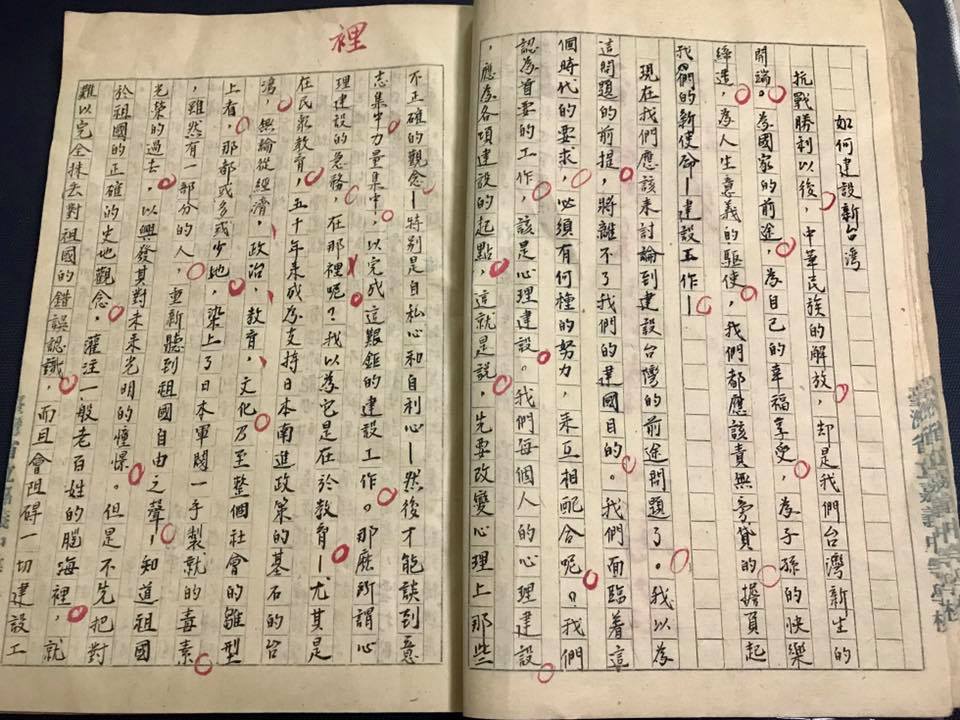 如何建設新台灣
抗戰勝利以後，中華民族的解放，却是我們台灣新生的
開端。為國家的前途，為自己的幸福享受，為子孫的快樂
締造，為人生意義的驅使，我們都應該責無旁貸的擔負起
我們的新使命—建設工作—
現在我們應該來討論到建設台灣的前途問題了。我以為
這問題的前提，將離不了我們的建國目的。我們面臨着這
個時代的要求，必須有何種的努力，來互相配合呢。我們
認為首要的工作，該是心理建設。我們每個人的心理建設
，應為各項建設的起點，這就是說，先要改變心理上那些
裡
不正確的觀念—特別是自私心和自利心—然後才能談到意
志集中力量集中，以完成這艱鉅的建設工作。那麽所謂心
理建設的急務，在那裡呢？我以為它是在於教育—尤其是
在民衆教育，五十年來成為支持日本南進政策的基石的台
灣，無論從經濟，政治，教育，文化乃至整個社會的雛型
上看，那都或多或少地，染上了日本軍閥一手製就的毒素
，雖然有一部分的人，重新聽到祖國自由之聲，知道祖國
光榮的過去，以興發其對未來光明的憧憬。但是不先把對
於祖國的正確的史地觀念，灌注一般老百姓的腦海裡，就
難以完全抹去對祖國的錯誤認識，而且會阻碍一切建設工